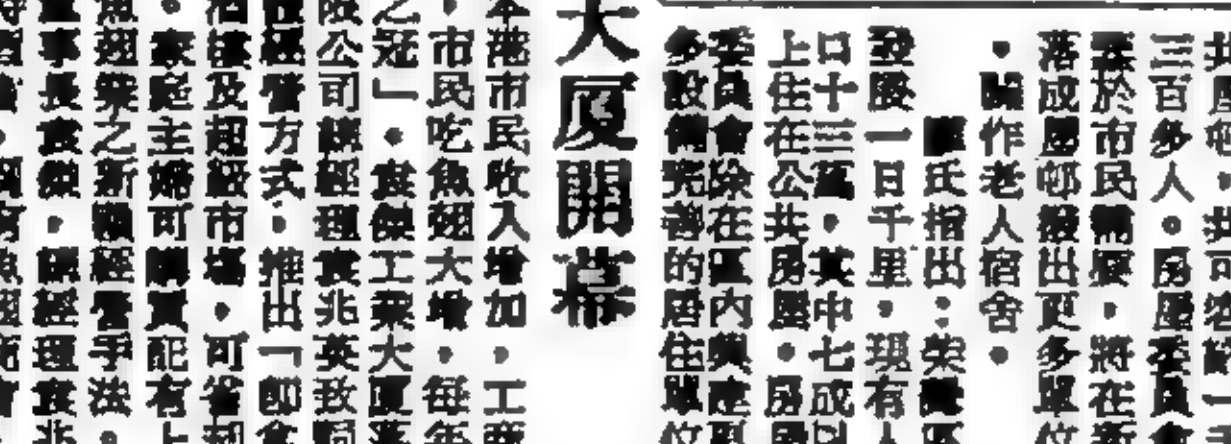 三百多人。房屋委員會
於市民需要,將在新
落成屋邨撥出更多單位
,闢作老人宿舍。
羅氏指出:柴灣區
發展一日千里,現有人
口十三萬,其中七成以
上住在公共房屋。房屋
委員會除在區內興
多設備完善的居住單位
大厦開幕
本港市民收入增加,工商
,市民吃魚翅大增,每年
之冠」。袁傑工業大厦
限公司總經理袁兆英致詞
經營方式,推出「即食
酒樓及超級市場,可省却
。家庭主婦可購買配有上
魚翅業之新穎經營手法。
事長袁傑,總經理袁兆